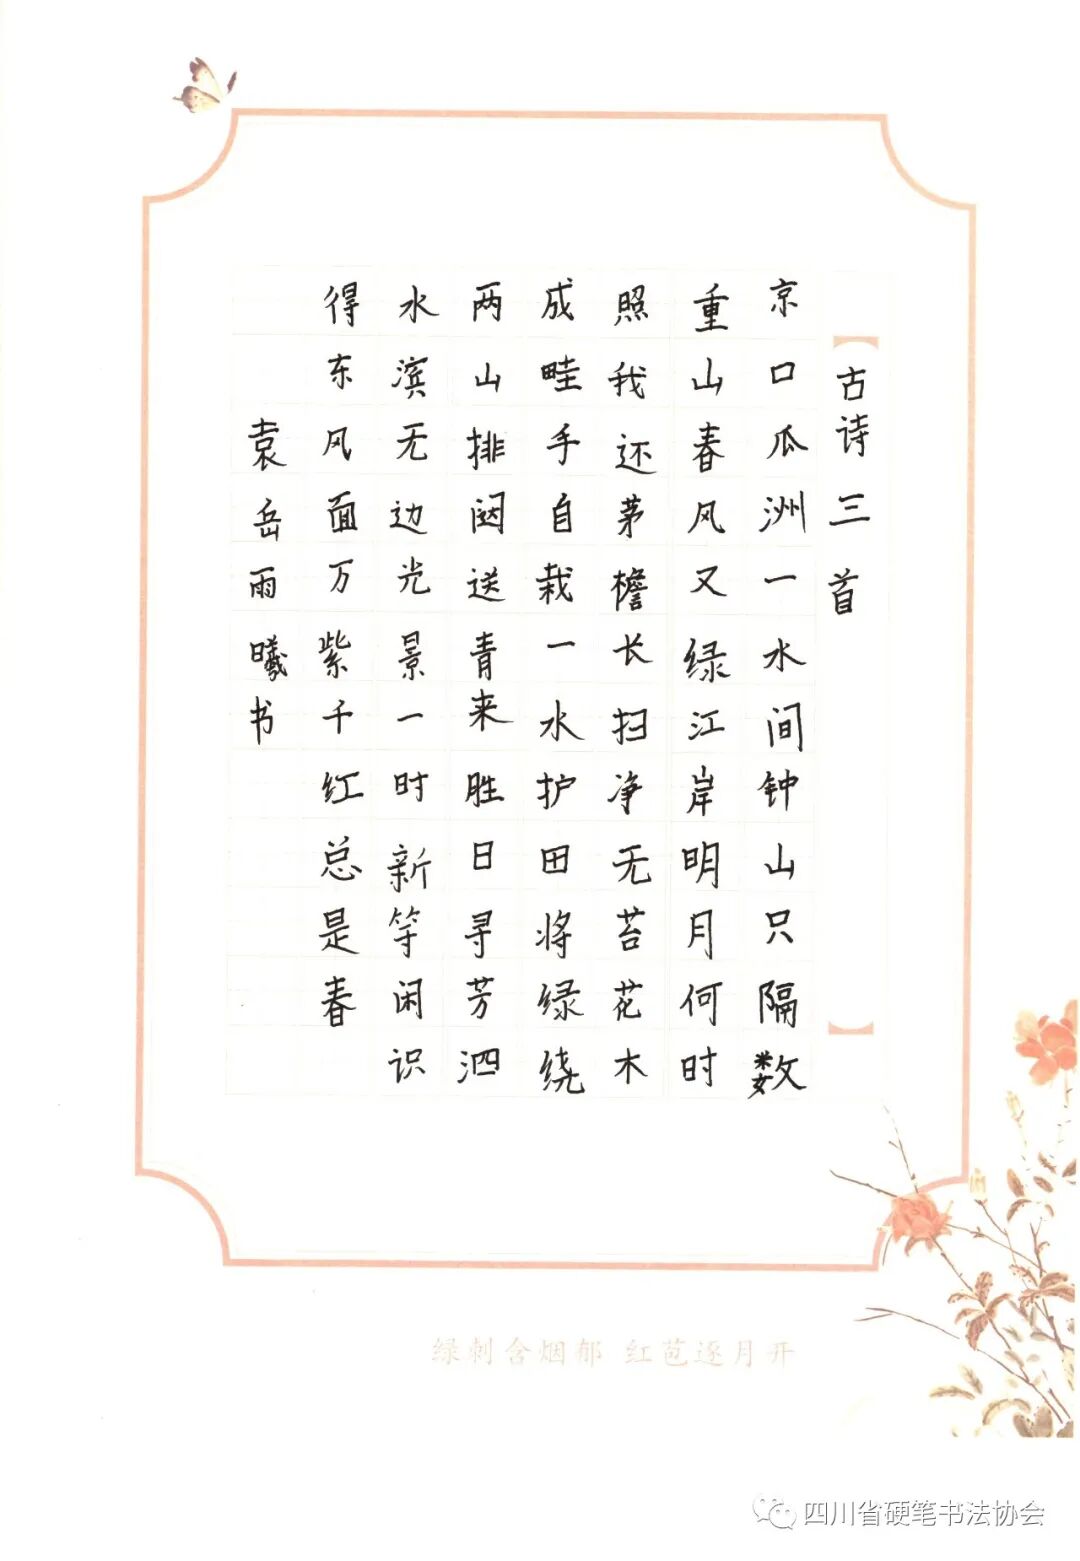 古诗三首
京口瓜洲一水间钟山只隔数
重山春风又绿江岸明月何时
照我还茅檐长扫净无苔花木
成畦手自栽一水护田将绿绕
两山排闼送青来胜日寻芳泗
水滨无边光景一时新等闲识
得东风面万紫千红总是春
袁岳雨曦书
绿刺含烟郁 红苞逐月开
四川省硬笔书法协会